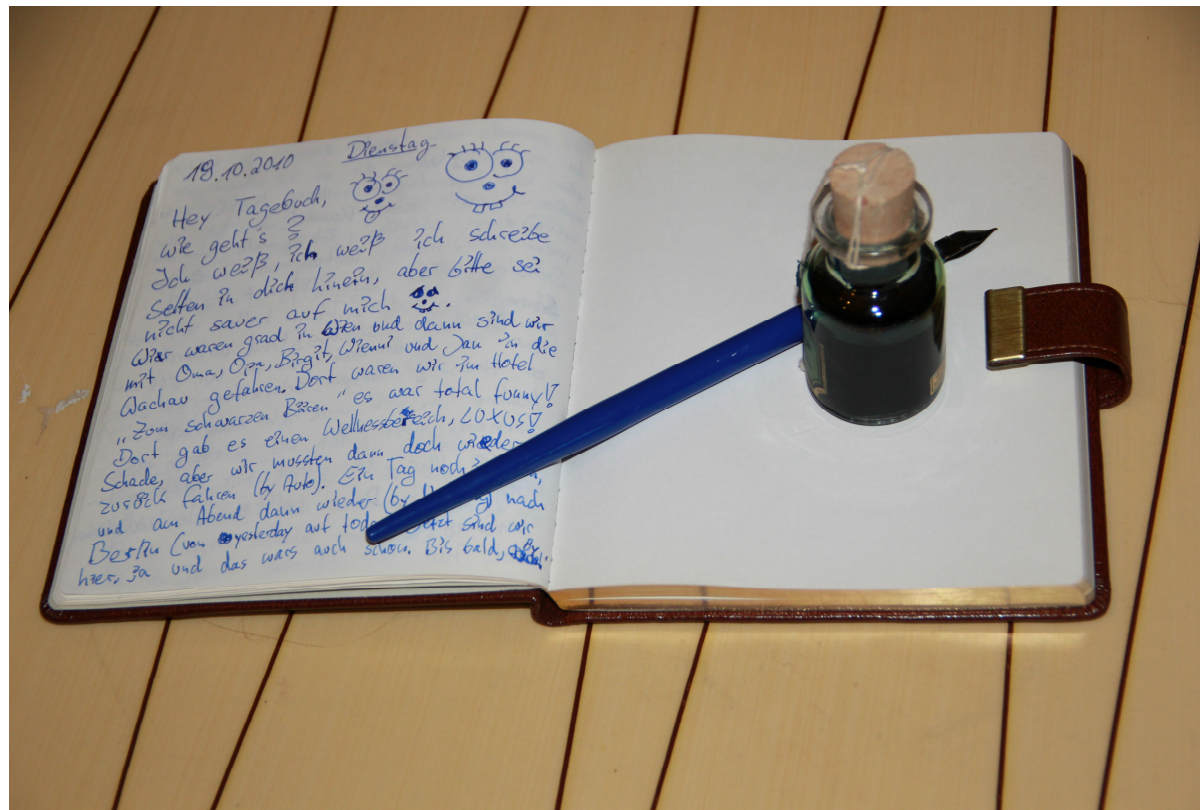 19.10.2010 Dienstag
Hey Tagebuch,
wie geht's?
Ich weiß, ich weiß ich schreibe
selten in dich hinein, aber bitte sei
nicht sauer auf mich .
Wir waren grad in Wien und dann sind wir
mit Oma, Opa, Birgit, Wienni und Jan in die
Wachau gefahren. Dort waren wir im Hotel
"Zum schwarzen Bären" es war total funny!
Dort gab es einen Wellnessbereich, LUXUS!
Schade, aber wir mussten dann doch wieder
zurück fahren (by Auto). Ein Tag noch
und am Abend dann wieder (by nach
Berlin (von yesterday auf sind wir
hier, ja und das wars auch schon. Bis bald,